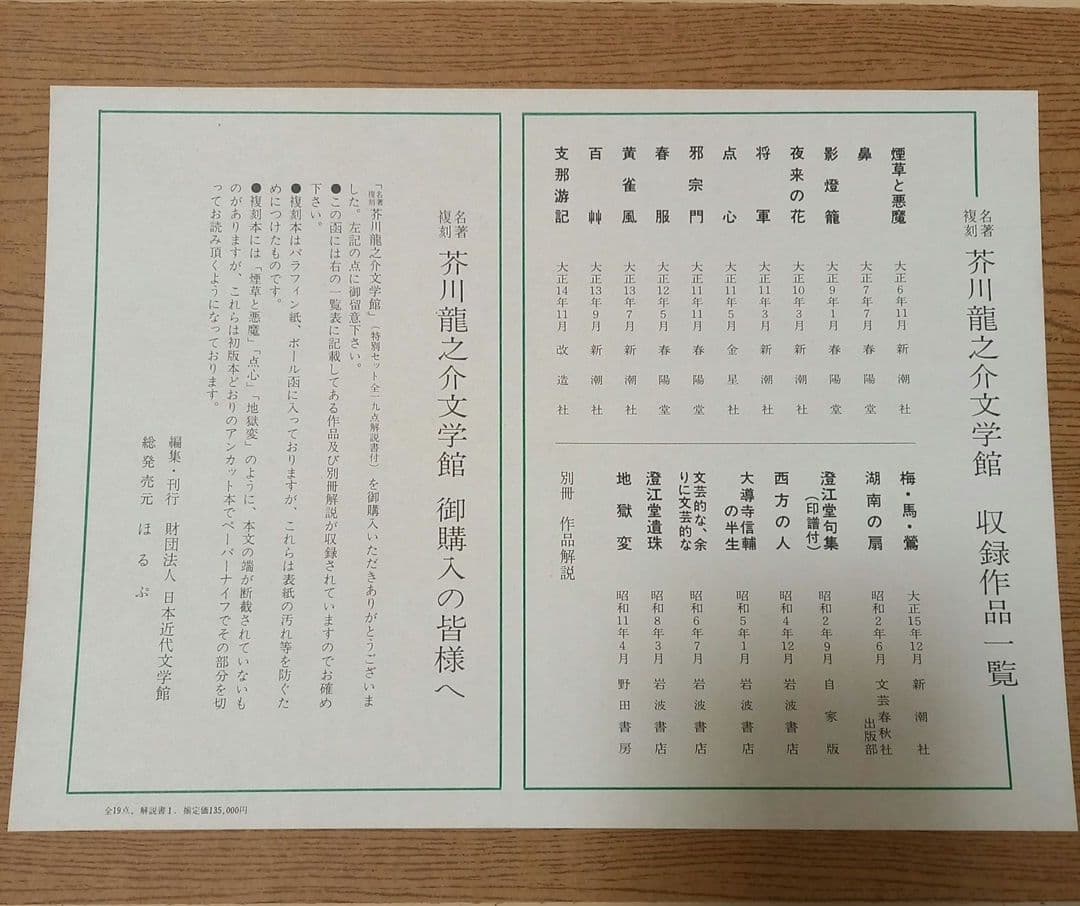 名著複刻 芥川龍之介文学館 収録作品一覧
煙草と悪魔 大正6年11月 新潮社
鼻 大正7年7月 春陽堂
影燈籠 大正9年1月 春陽堂
夜来の花 大正10年3月 新潮社
将軍 大正11年3月 新潮社
点心 大正11年5月 金星社
邪宗門 大正11年11月 春陽堂
春服 大正12年5月 春陽堂
黄雀風 大正13年7月 新潮社
百艸 大正13年9月 新潮社
支那游記 大正14年11月 改造社
梅・馬・鶯 大正15年12月 新潮社
湖南の扇 昭和2年6月 文芸春秋社出版部
澄江堂句集(印譜付) 昭和2年9月 自家版
西方の人 昭和4年12月 岩波書店
大導寺信輔の半生 昭和5年1月 岩波書店
文芸的な、余りに文芸的な 昭和6年7月 岩波書店
澄江堂遺珠 昭和8年3月 岩波書店
地獄変 昭和11年4月 野田書房
別冊 作品解説
名著複刻 芥川龍之介文学館 御購入の皆様へ
「名著複刻 芥川龍之介文学館」(特別セット全一九点解説書付)を御購入いただきありがとうございま
した。左記の点に御留意下さい。
●この函には右の一覧表に記載してある作品及び別冊解説が収録されていますのでお確め
下さい。
●複刻本はパラフィン紙、ボール函に入っておりますが、これらは表紙の汚れ等を防ぐた
めにつけたものです。
●複刻本には「煙草と悪魔」「点心」「地獄変」のように、本文の端が断裁されていないも
のがありますが、これらは初版本どおりのアンカット本でペーパーナイフでその部分を切
ってお読み頂くようになっております。
編集・刊行 財団法人 日本近代文学館
総発売元 ほるぷ
全19点、解説書1. 揃定価135,000円